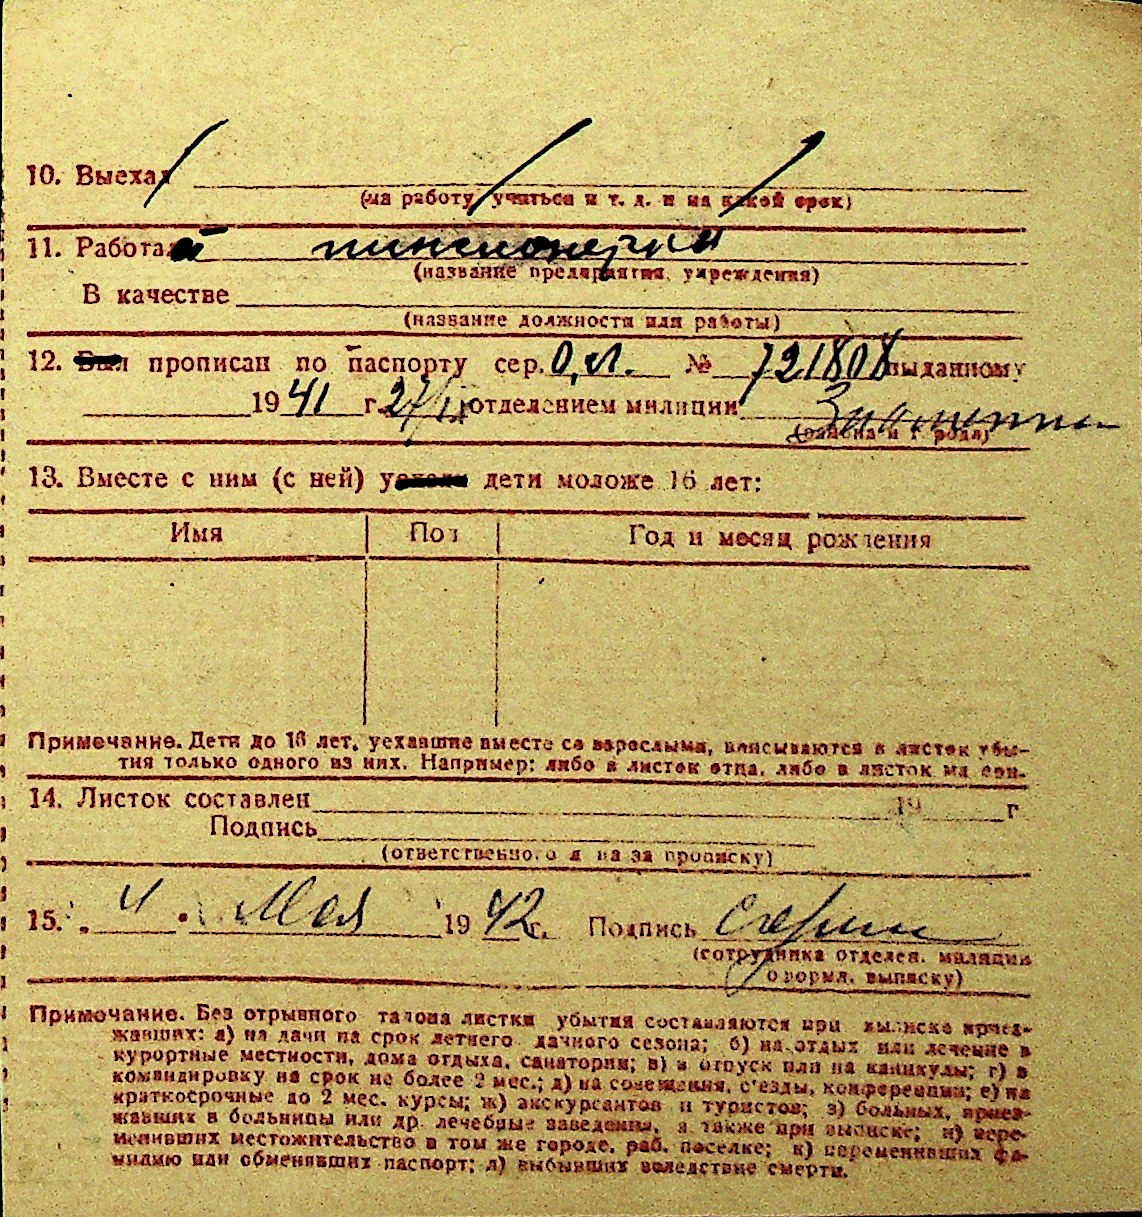 10. Выехал
(на работу, учиться и т. д. и на какой срок)
11. Работа пинсионерка
(название предприятия, учреждения)
В качестве
(название должности или работы)
12. прописан по паспорту сер. О,Л. № 721808 выданному
1941 г. 27/ отделением милиции
(района и города)
13. Вместе с ним (с ней) дети моложе 16 лет:
Имя Пол Год и месяц рождения
Примечание. Дети до 16 лет, уехавшие вместе со взрослыми, вписываются в листок убы-
тия только одного из них. Например: либо в листок отца, либо в листок матери.
14. Листок составлен 19 г
Подпись
(ответственного лица за прописку)
15. „ 4 " Мая 1942 г. Подпись
(сотрудника отделен. милиции
оформл. выписку)
Примечание. Без отрывного талона листки убытия составляются при выписке приез-
жавших: а) на дачи на срок летнего дачного сезона; б) на отдых или лечение в
курортные местности, дома отдыха, санатории; в) в отпуск или на каникулы; г) в
командировку на срок не более 2 мес.; д) на совещания, с'езды, конференции; е) на
краткосрочные до 2 мес. курсы; ж) экскурсантов и туристов; з) больных, приез-
жавших в больницы или др. лечебные заведения, а также при выписке; и) пере-
менивших местожительство в том же городе, раб. поселке; к) переменивших фа-
милию или обменявших паспорт; л) выбывших вследствие смерти.